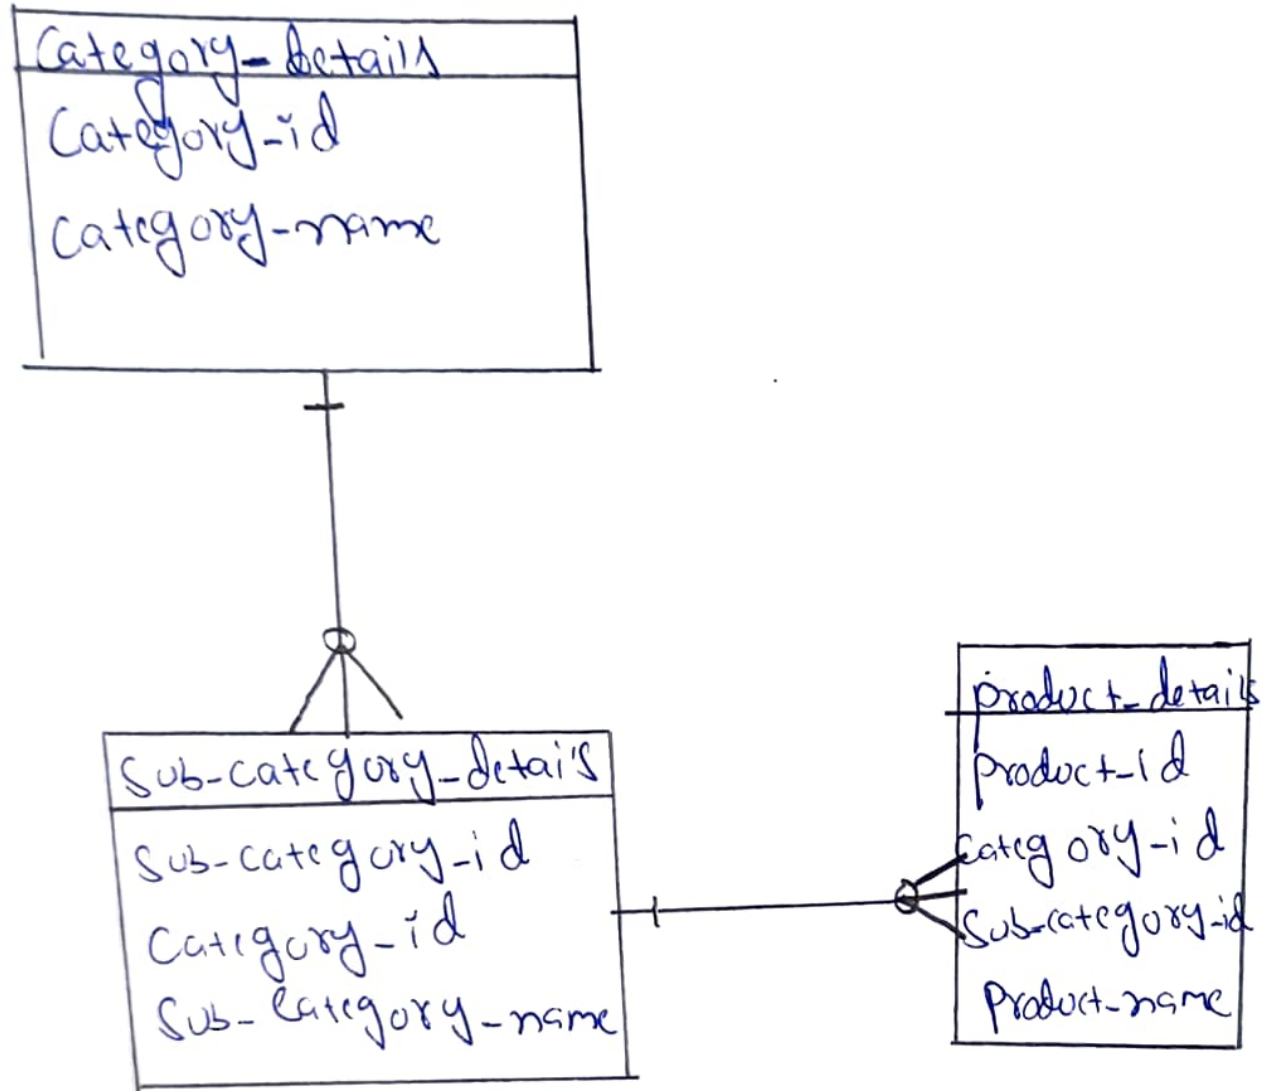 Category_details
Category_id
Category_name
Sub-category_detai's
Sub-category_id
Category_id
Sub-Category_name
product_details
product_id
category_id
Sub-category_id
product_name